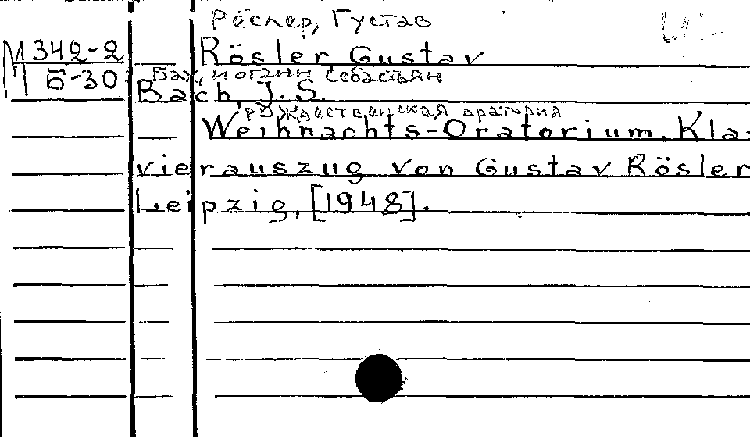 Рёслер, Густав
М 342-2
Rösler, Gustav
Б-30
Бах, Иоганн Себастьян
Bach, J. S.
Рождественская оратория
Weihnachts-Oratorium. Kla-
vierauszug von Gustav Rösler
Leipzig, [1948].